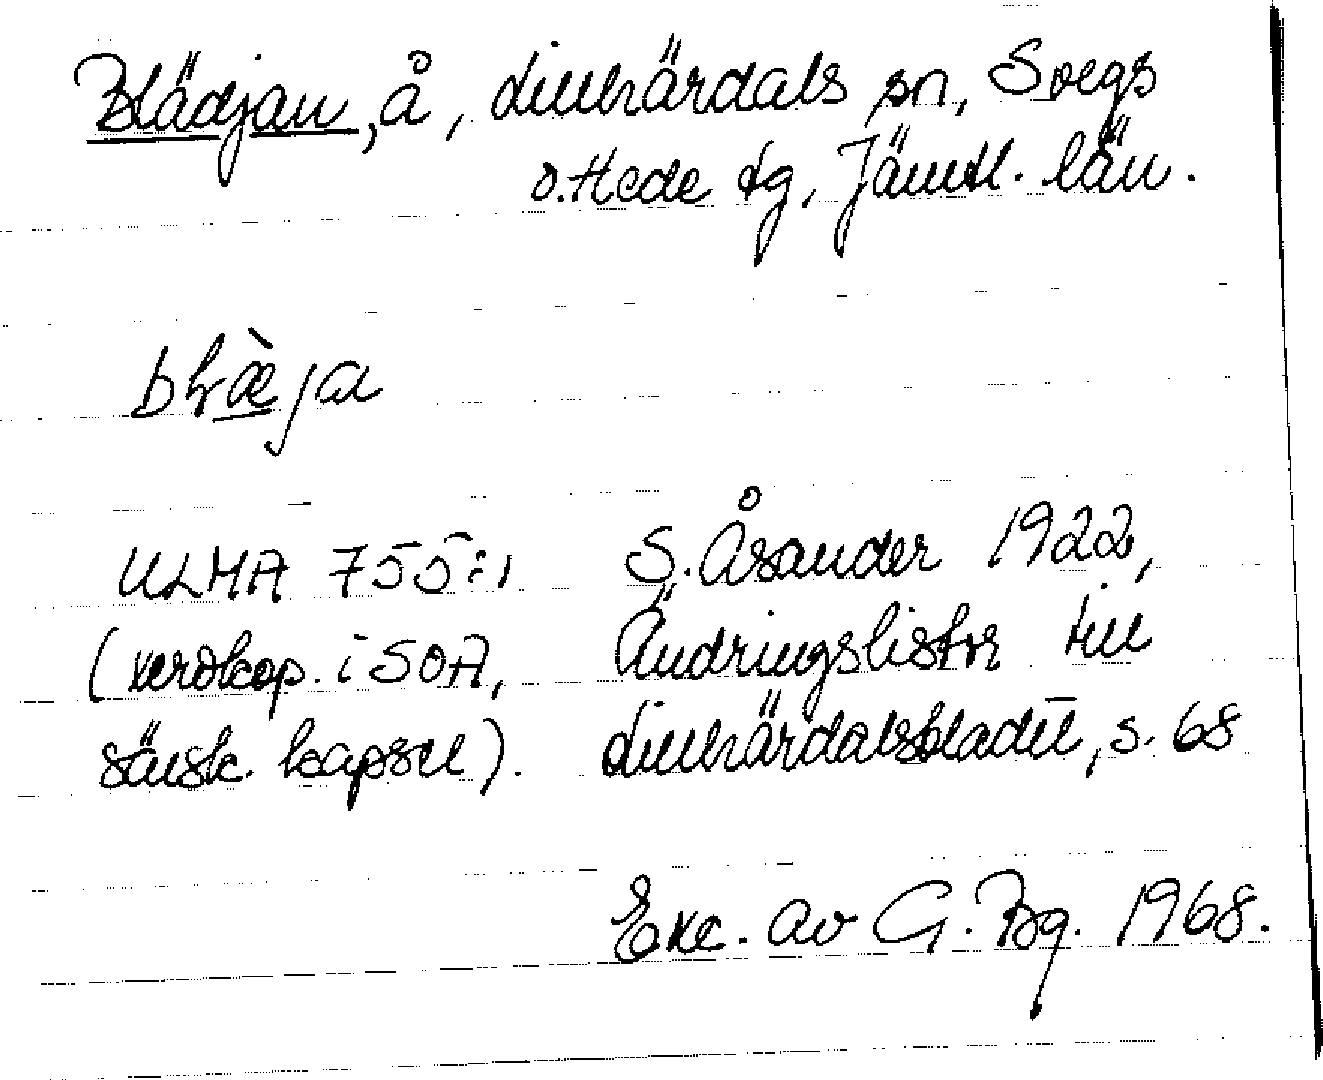 Blädjan, å, Lillhärdals sn, Svegs
o. Hede tg, Jämtl. län.
bɫæ̀ja
ULMA 755:1 S. Åsander 1922,
(xerokop. i SOA, Ändringslistor till
särsk. kapsel). Lillhärdalsbladet, s. 68
Exc. av G. Bg. 1968.